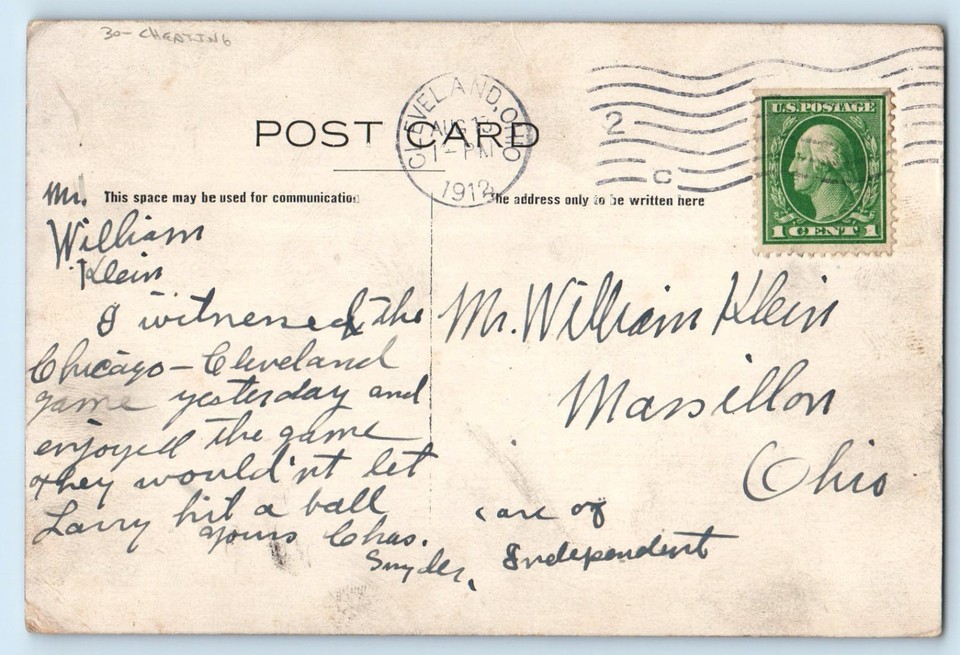 30- CHEATING
POST CARD
CLEVELAND, OHIO
AUG 13
1 - PM
1912
2
C
U.S. POSTAGE
1 CENT 1
This space may be used for communication
The address only to be written here
Mr.
William
Klein
I witnessed the
Chicago - Cleveland
game yesterday and
enjoyed the game
they would'nt let
Larry hit a ball
yours Chas.
Snyder.
Mr. William Klein
Massillon
Ohio
care of
Independent